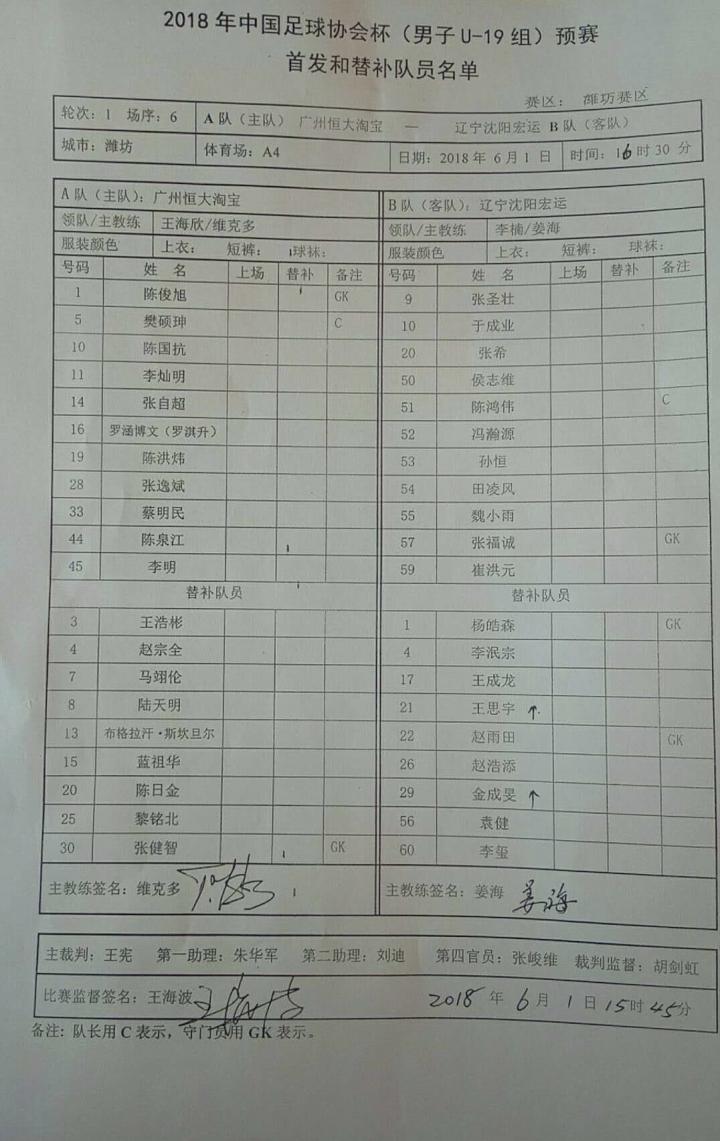 2018 年中国足球协会杯（男子 U-19 组）预赛
首发和替补队员名单
赛区： 潍坊赛区
轮次：1 场序：6 A 队（主队） 广州恒大淘宝 — 辽宁沈阳宏运 B 队（客队）
城市：潍坊 体育场：A4 日期：2018 年 6 月 1 日 时间：16 时 30 分
A 队（主队）：广州恒大淘宝 B 队（客队）：辽宁沈阳宏运
领队/主教练 王海欣/维克多 领队/主教练 李楠/姜海
服装颜色 上衣： 短裤： 球袜： 服装颜色 上衣： 短裤： 球袜：
号码 姓 名 上场 替补 备注 号码 姓 名 上场 替补 备注
1 陈俊旭 GK 9 张圣壮
5 樊硕珅 C 10 于成业
10 陈国抗 20 张希
11 李灿明 50 侯志维
14 张自超 51 陈鸿伟 C
16 罗涵博文（罗淇升） 52 冯瀚源
19 陈洪炜 53 孙恒
28 张逸斌 54 田凌风
33 蔡明民 55 魏小雨
44 陈泉江 57 张福诚 GK
45 李明 59 崔洪元
替补队员 替补队员
3 王浩彬 1 杨皓森 GK
4 赵宗全 4 李泯宗
7 马翊伦 17 王成龙
8 陆天明 21 王思宇 ↑
13 布格拉汗·斯坎旦尔 22 赵雨田 GK
15 蓝祖华 26 赵浩添
20 陈日金 29 金成旻 ↑
25 黎铭北 56 袁健
30 张健智 GK 60 李玺
主教练签名：维克多 主教练签名：姜海 姜海
主裁判：王宪 第一助理：朱华军 第二助理：刘迪 第四官员：张峻维 裁判监督：胡剑虹
比赛监督签名：王海波 2018 年 6 月 1 日 15 时 45 分
备注: 队长用 C 表示，守门员用 GK 表示。